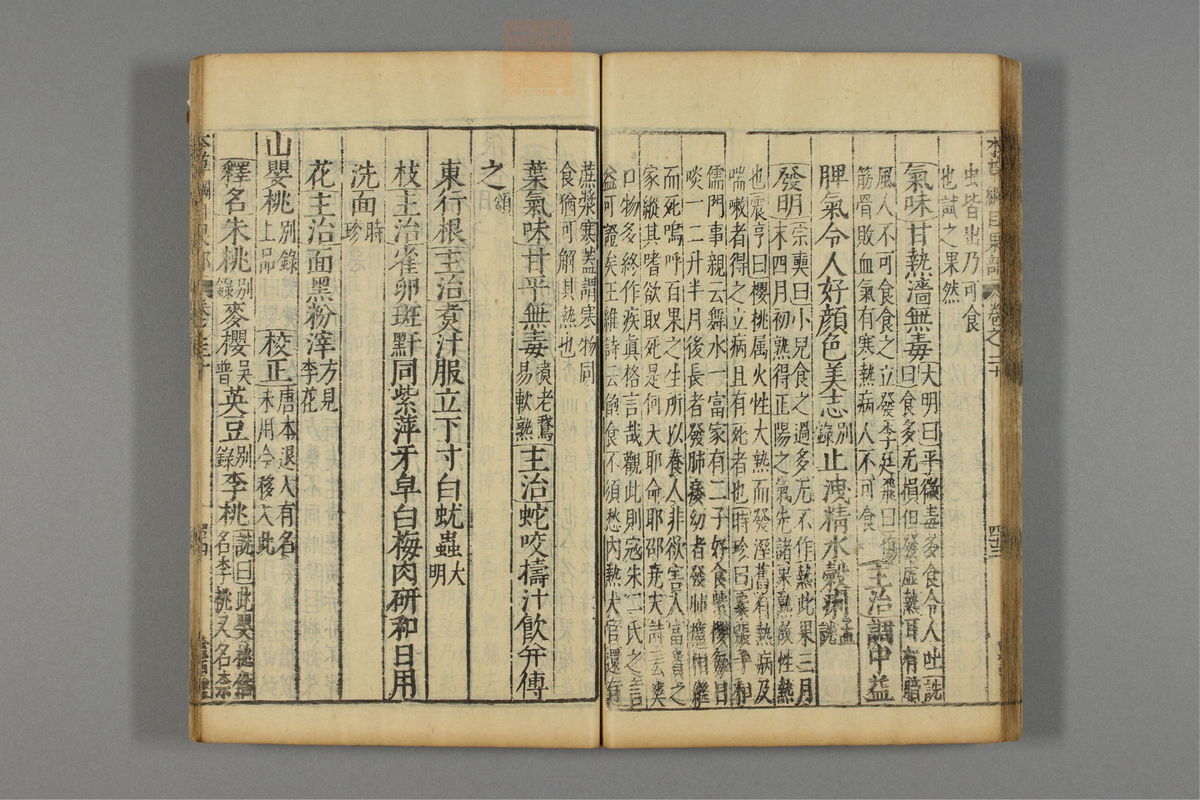 虫皆出乃可食
也試之果然
氣味甘熱濇無毒大明曰平微毒多食令人吐詵
曰食多无損但發虛熱耳有暗
風人不可食食之立發李廷飛曰傷
筋骨敗血氣有寒熱病人不可食主治調中益
脾氣令人好顏色美志別錄止洩精水穀痢孟詵
發明宗奭曰小兒食之過多无不作熱此果三月
末四月初熟得正陽之氣先諸果熟故性熱
也震亨曰櫻桃属火性大熱而發溼舊有熱病及
喘嗽者得之立病且有死者也時珍曰案張子和
儒門事親云舞水一富家有二子好食紫櫻每日
啖一二升半月後長者發肺痿幼者發肺癰相繼
而死嗚呼百果之生所以養人非欲害人富貴之
家縱其嗜欲取死是何天耶命耶邵堯夫詩云爽
口物多終作疾真格言哉觀此則寇朱二氏之言
益可證矣王維詩云飽食不須愁內熱大官還有
蔗漿寒蓋謂寒物同
食猶可解其熱也
葉氣味甘平無毒煮老鵞
易軟熟主治蛇咬擣汁飮并傅
之頌
東行根主治煑汁服立下寸白蚘蟲大明
枝主治雀卵斑䵟同紫萍牙皁白梅肉研和日用
洗面時珍
花主治面黑粉滓方見
李花
山嬰桃別錄
上品校正唐本退入有名
未用今移入此
釋名朱桃別錄麥櫻吳普英豆別錄李桃詵曰此嬰桃俗
名李桃又名柰